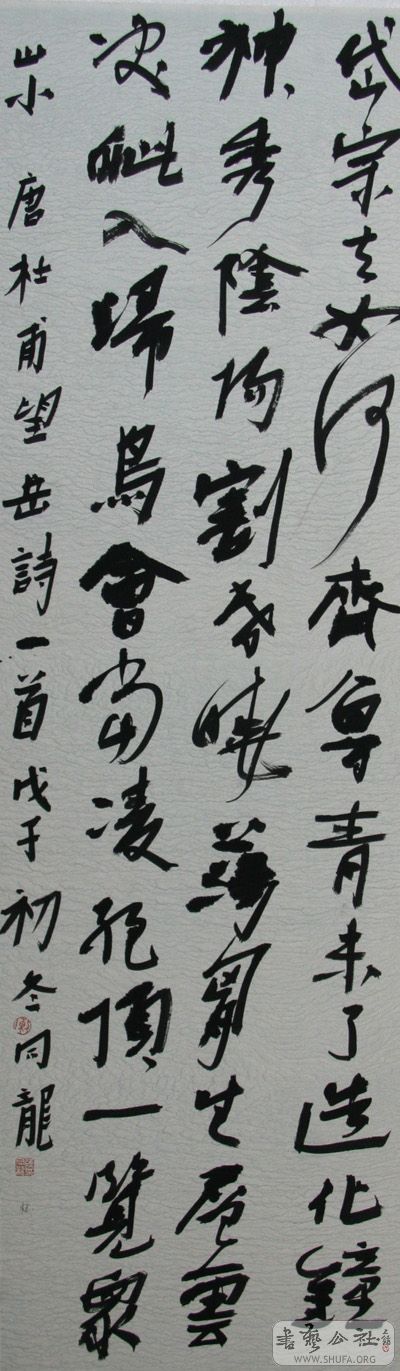 岱宗夫如何齊魯青未了造化鐘
神秀陰陽割昏曉蕩胸生層雲
决眦入歸鳥會當凌絕頂一覽眾
山小 唐杜甫望岳詩一首戊子初冬同龍
書藝公社
WWW.SHUFA.ORG